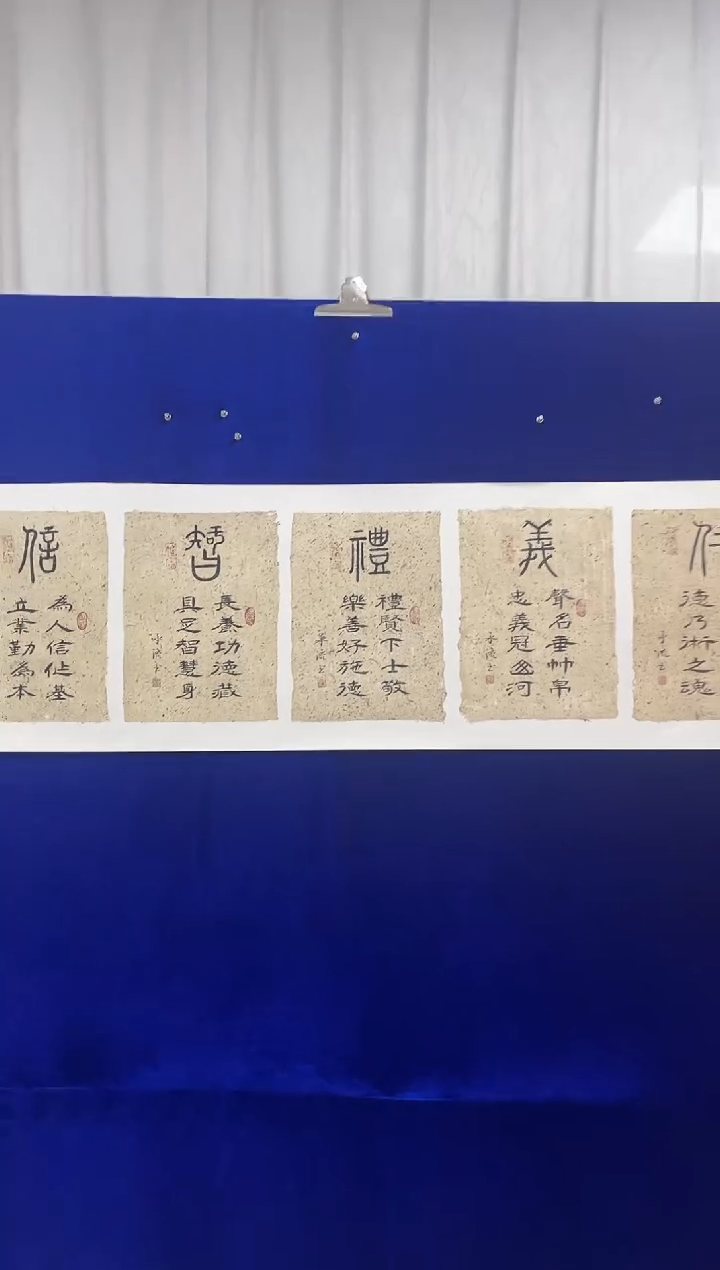 仁
德乃術之魂
義
聲名垂竹帛
忠義冠山河
禮
禮賢下士敬
樂善好施德
智
長養功德藏
具足智慧身
信
為人信作基
立業勤為本